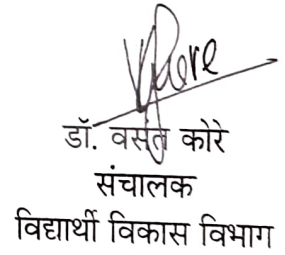 डॉ. वसंत कोरे
संचालक
विद्यार्थी विकास विभाग